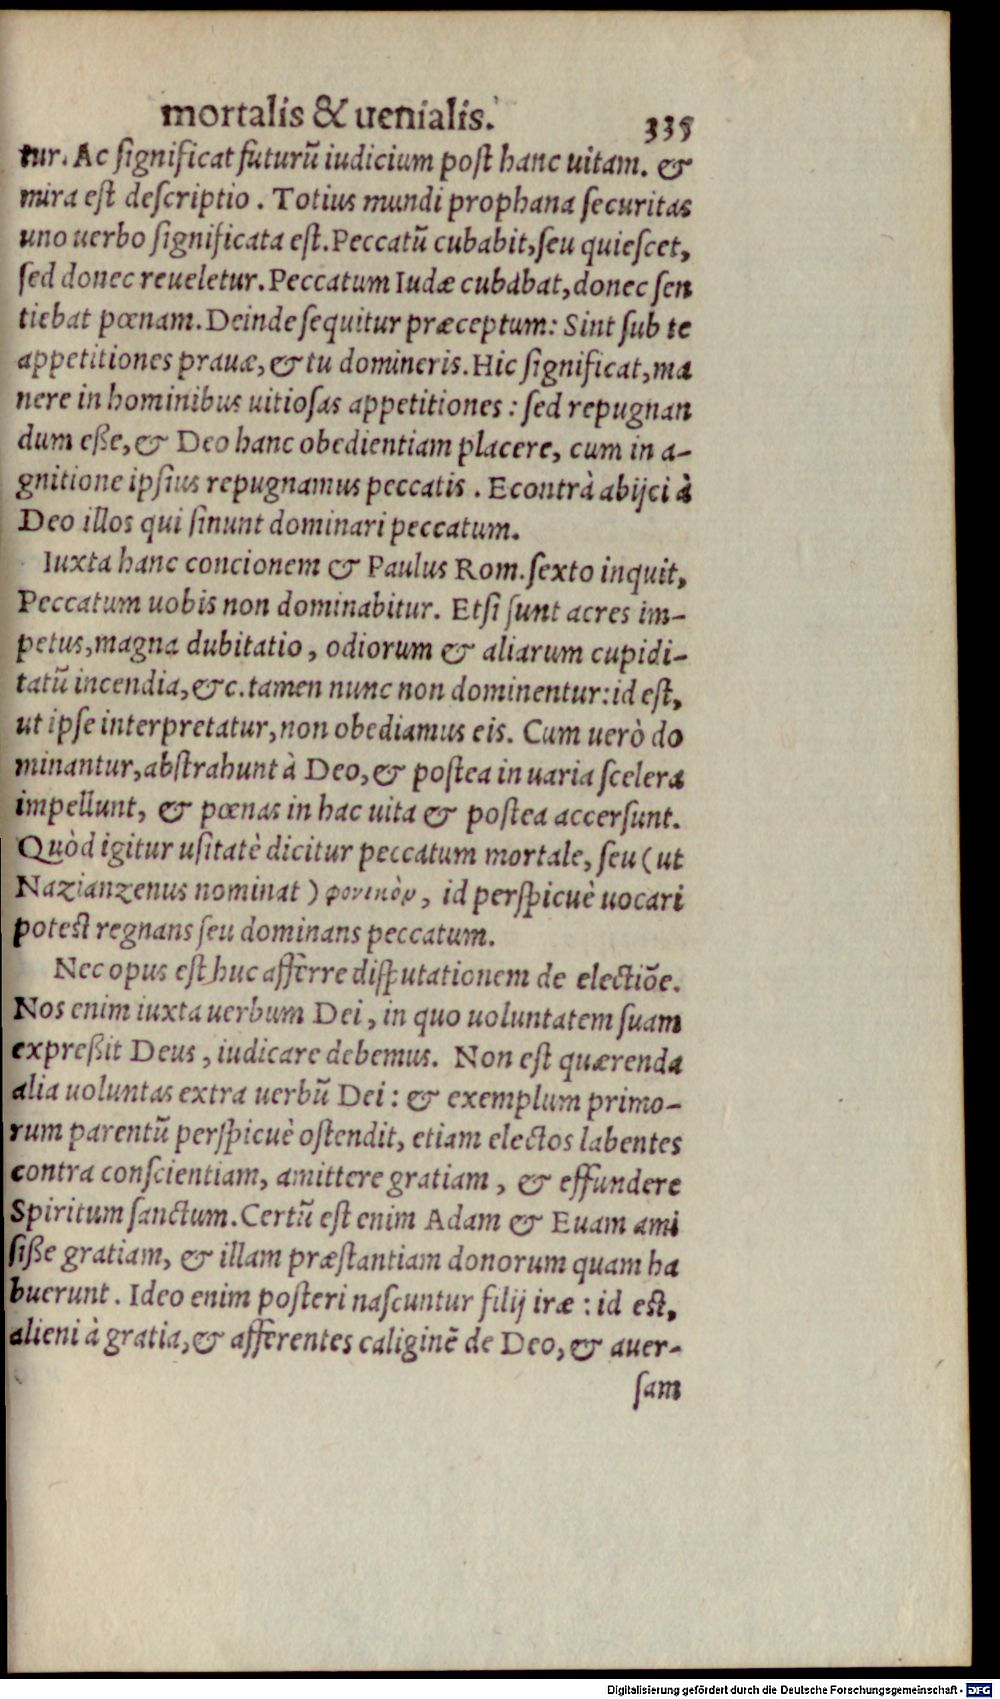 mortalis & uenialis. 335
tur. Ac ſignificat futurũ iudicium poſt hanc uitam. &
mira eſt deſcriptio. Totius mundi prophana ſecuritas
uno uerbo ſignificata eſt. Peccatũ cubabit, ſeu quieſcet,
ſed donec reueletur. Peccatum Iudæ cubabat, donec ſen
tiebat pœnam. Deinde ſequitur præceptum: Sint ſub te
appetitiones prauæ, & tu domineris. Hic ſignificat, ma
nere in hominibus uitioſas appetitiones: ſed repugnan
dum eße, & Deo hanc obedientiam placere, cum in a-
gnitione ipſius repugnamus peccatis. Econtrà abijci à
Deo illos qui ſinunt dominari peccatum.
Iuxta hanc concionem & Paulus Rom. ſexto inquit,
Peccatum uobis non dominabitur. Etſi ſunt acres im-
petus, magna dubitatio, odiorum & aliarum cupidi-
tatũ incendia, &c. tamen nunc non dominentur: id eſt,
ut ipſe interpretatur, non obediamus eis. Cum uerò do
minantur, abſtrahunt à Deo, & poſtea in uaria ſcelera
impellunt, & pœnas in hac uita & poſtea accerſunt.
Quòd igitur uſitatè dicitur peccatum mortale, ſeu (ut
Nazianzenus nominat) φονικὸν, id perſpicuè uocari
poteſt regnans ſeu dominans peccatum.
Nec opus eſt huc afferre diſputationem de electiõe.
Nos enim iuxta uerbum Dei, in quo uoluntatem ſuam
expreßit Deus, iudicare debemus. Non eſt quærenda
alia uoluntas extra uerbũ Dei: & exemplum primo-
rum parentũ perſpicuè oſtendit, etiam electos labentes
contra conſcientiam, amittere gratiam, & effundere
Spiritum ſanctum. Certũ eſt enim Adam & Euam ami
ſiße gratiam, & illam præſtantiam donorum quam ha
buerunt. Ideo enim poſteri naſcuntur filij iræ: id eſt,
alieni à gratia, & afferentes caliginẽ de Deo, & auer-
ſam
Digitalisierung gefördert durch die Deutsche Forschungsgemeinschaft - DFG